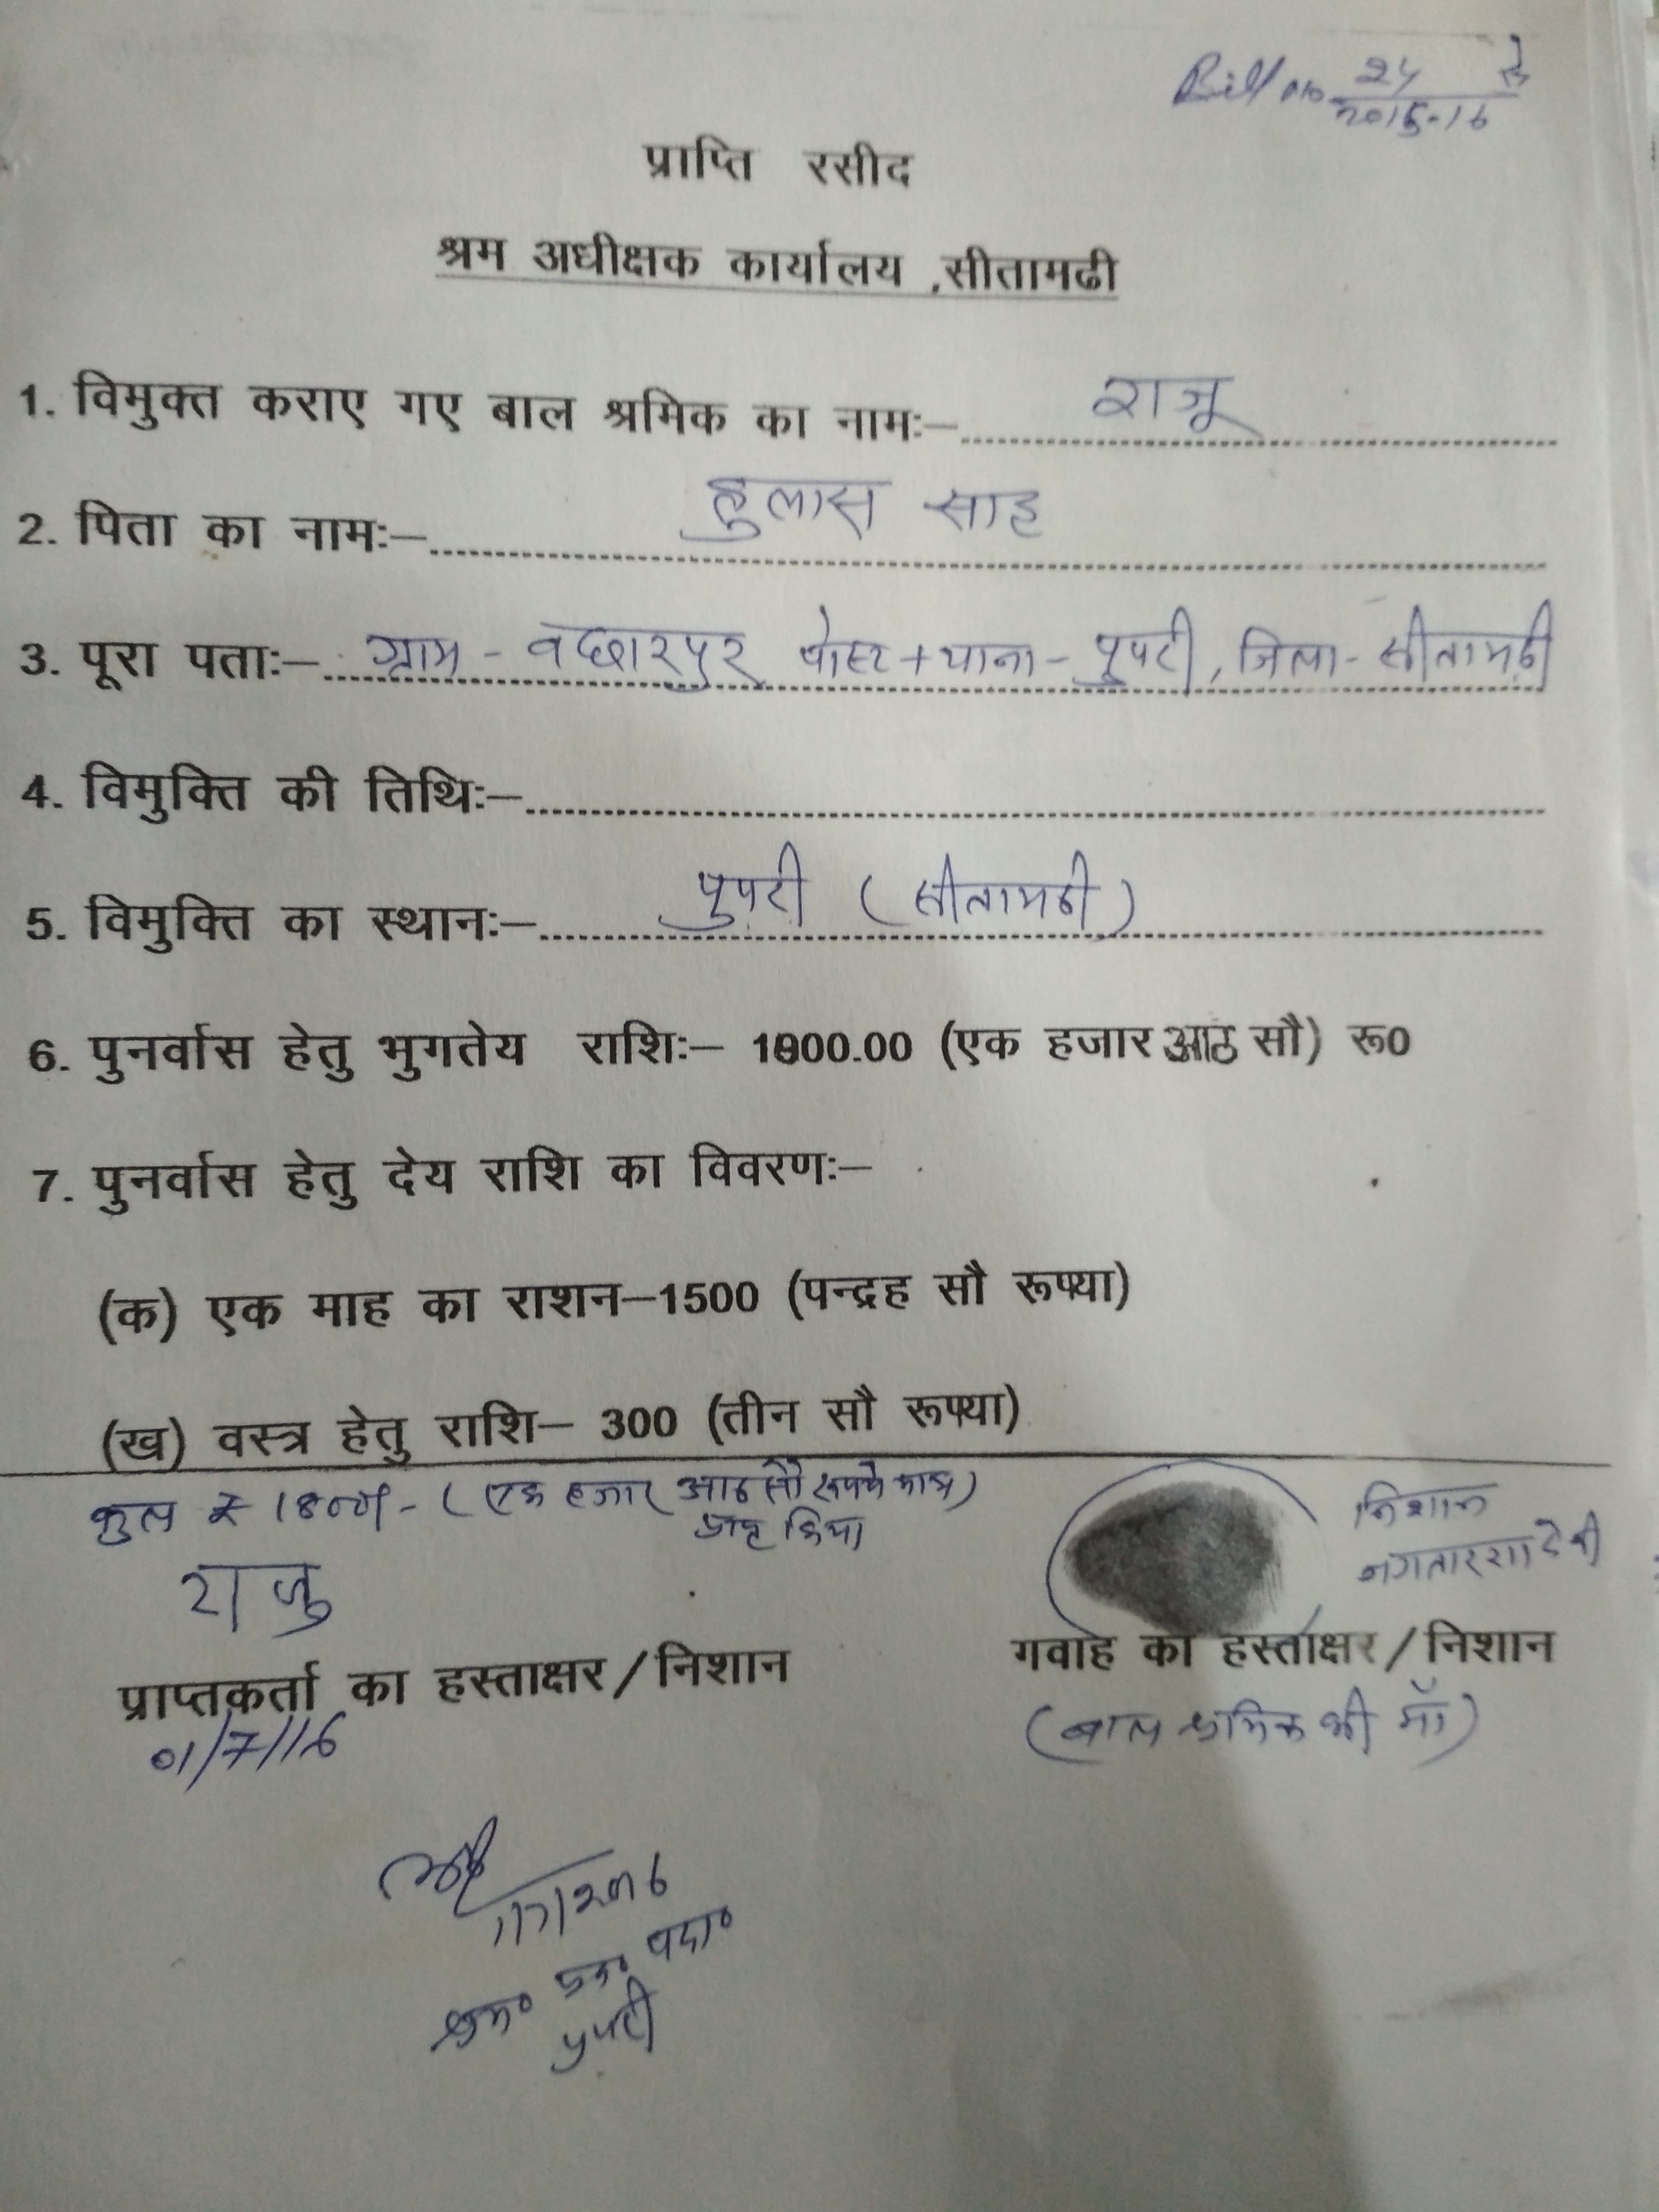 Bill no 24 से
2015-16
प्राप्ति रसीद
श्रम अधीक्षक कार्यालय ,सीतामढी
1. विमुक्त कराए गए बाल श्रमिक का नामः– राजू
2. पिता का नामः– हुलास साह
3. पूरा पताः– ग्राम - बछारपुर पोस्ट + थाना - पुपरी, जिला - सीतामढी
4. विमुक्ति की तिथिः–
5. विमुक्ति का स्थानः– पुपरी (सीतामढी)
6. पुनर्वास हेतु भुगतेय राशिः– 1800.00 (एक हजार आठ सौ) रू0
7. पुनर्वास हेतु देय राशि का विवरणः–
(क) एक माह का राशन–1500 (पन्द्रह सौ रूप्या)
(ख) वस्त्र हेतु राशि– 300 (तीन सौ रूप्या)
कुल ₹ 1800/- (एक हजार आठ सौ रूपये मात्र)
प्राप्त किया
निशान
राजु
प्राप्तकर्ता का हस्ताक्षर/निशान
गवाह का हस्ताक्षर/निशान
01/7/16
(बाल श्रमिक की माँ)
1/7/2016
श्रम० प्र० पदा०
पुपरी